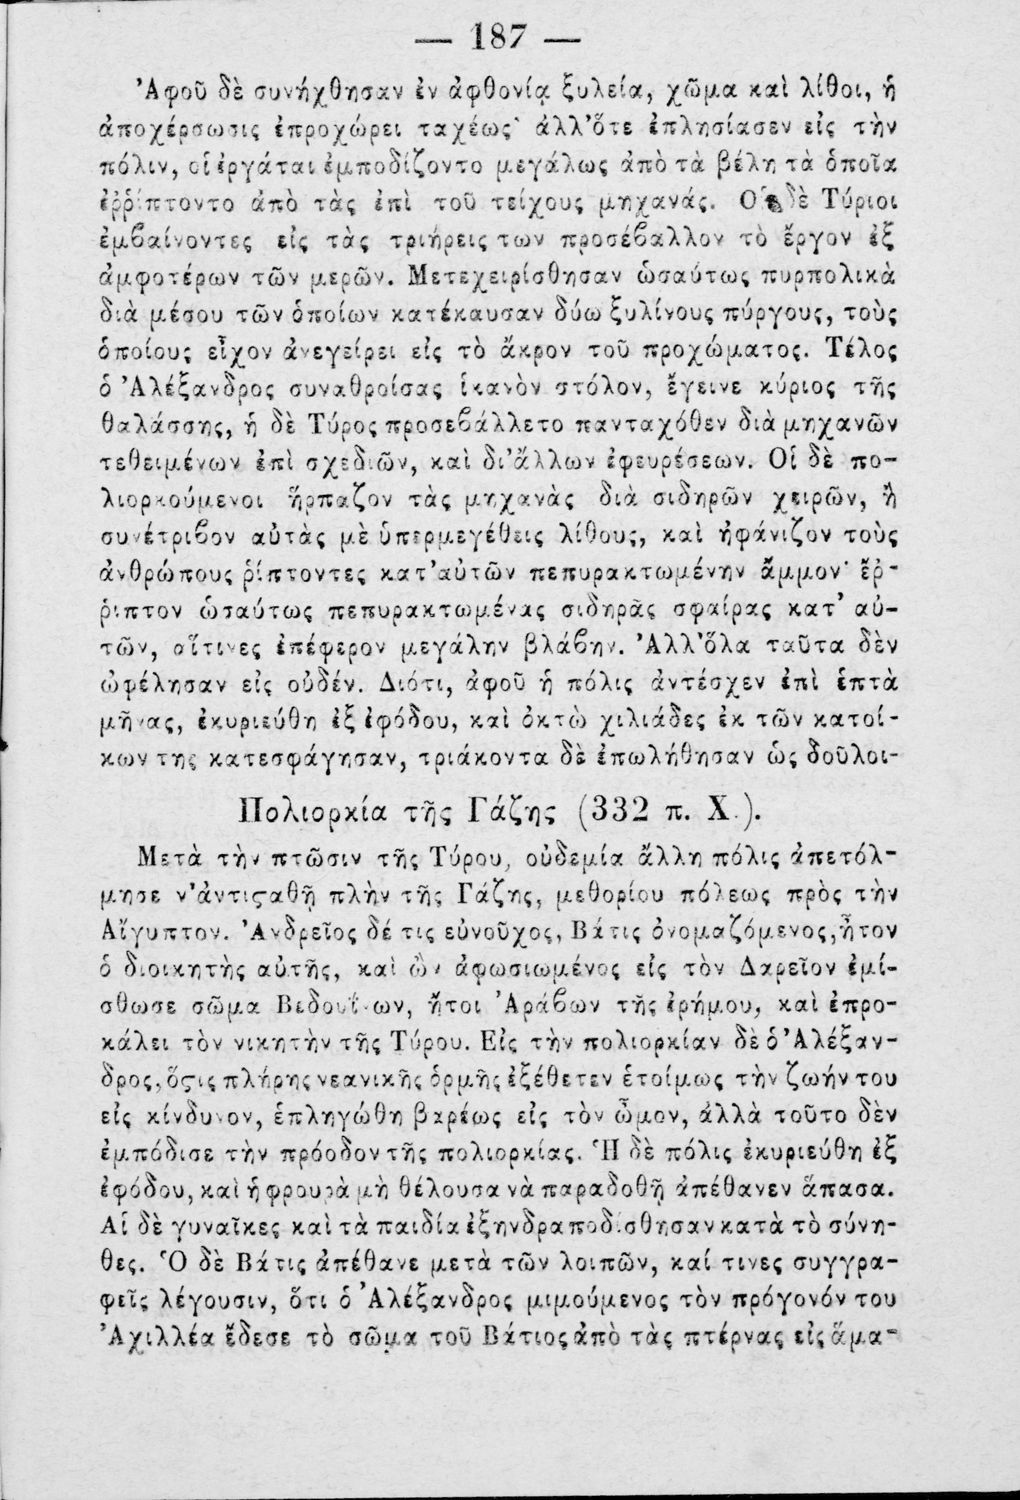 — 187 —
Ἀφοῦ δὲ συνήχθησαν ἐν ἀφθονίᾳ ξυλεία, χῶμα καὶ λίθοι, ἡ
ἀποχέρσωσις ἐπροχώρει ταχέως· ἀλλ'ὅτε ἐπλησίασεν εἰς τὴν
πόλιν, οἱ ἐργάται ἐμποδίζοντο μεγάλως ἀπὸ τὰ βέλη τὰ ὁποῖα
ἐῤῥίπτοντο ἀπὸ τὰς ἐπὶ τοῦ τείχους μηχανάς. Οἱ δὲ Τύριοι
ἐμβαίνοντες εἰς τὰς τριήρεις των προσέβαλλον τὸ ἔργον ἐξ
ἀμφοτέρων τῶν μερῶν. Μετεχειρίσθησαν ὡσαύτως πυρπολικὰ
διὰ μέσου τῶν ὁποίων κατέκαυσαν δύω ξυλίνους πύργους, τοὺς
ὁποίους εἶχον ἀνεγείρει εἰς τὸ ἄκρον τοῦ προχώματος. Τέλος
ὁ Ἀλέξανδρος συναθροίσας ἱκανὸν στόλον, ἔγεινε κύριος τῆς
θαλάσσης, ἡ δὲ Τύρος προσεβάλλετο πανταχόθεν διὰ μηχανῶν
τεθειμένων ἐπὶ σχεδιῶν, καὶ δι'ἄλλων ἐφευρέσεων. Οἱ δὲ πο-
λιορκούμενοι ἥρπαζον τὰς μηχανὰς διὰ σιδηρῶν χειρῶν, ἢ
συνέτριβον αὐτὰς μὲ ὑπερμεγέθεις λίθους, καὶ ἠφάνιζον τοὺς
ἀνθρώπους ῥίπτοντες κατ'αὐτῶν πεπυρακτωμένην ἄμμον· ἔῤ-
ῥιπτον ὡσαύτως πεπυρακτωμένας σιδηρᾶς σφαίρας κατ' αὐ-
τῶν, αἵτινες ἐπέφερον μεγάλην βλάβην. Ἀλλ'ὅλα ταῦτα δὲν
ὠφέλησαν εἰς οὐδέν. Διότι, ἀφοῦ ἡ πόλις ἀντέσχεν ἐπὶ ἑπτὰ
μῆνας, ἐκυριεύθη ἐξ ἐφόδου, καὶ ὀκτὼ χιλιάδες ἐκ τῶν κατοί-
κων της κατεσφάγησαν, τριάκοντα δὲ ἐπωλήθησαν ὡς δοῦλοι-
Πολιορκία τῆς Γάζης (332 π. Χ.).
Μετὰ τὴν πτῶσιν τῆς Τύρου, οὐδεμία ἄλλη πόλις ἀπετόλ-
μησε ν'ἀντιϛαθῇ πλὴν τῆς Γάζης, μεθορίου πόλεως πρὸς τὴν
Αἴγυπτον. Ἀνδρεῖος δέ τις εὐνοῦχος, Βάτις ὀνομαζόμενος, ἦτον
ὁ διοικητὴς αὐτῆς, καὶ ὢν ἀφωσιωμένος εἰς τὸν Δαρεῖον ἐμί-
σθωσε σῶμα Βεδουΐνων, ἤτοι Ἀράβων τῆς ἐρήμου, καὶ ἐπρο-
κάλει τὸν νικητὴν τῆς Τύρου. Εἰς τὴν πολιορκίαν δὲ ὁ Ἀλέξαν-
δρος, ὅϛις πλήρης νεανικῆς ὁρμῆς ἐξέθετεν ἑτοίμως τὴν ζωήν του
εἰς κίνδυνον, ἑπληγώθη βαρέως εἰς τὸν ὦμον, ἀλλὰ τοῦτο δὲν
ἐμπόδισε τὴν πρόοδον τῆς πολιορκίας. Ἡ δὲ πόλις ἐκυριεύθη ἐξ
ἐφόδου, καὶ ἡ φρουρὰ μὴ θέλουσα νὰ παραδοθῇ ἀπέθανεν ἅπασα.
Αἱ δὲ γυναῖκες καὶ τὰ παιδία ἐξηνδραποδίσθησαν κατὰ τὸ σύνη-
θες. Ὁ δὲ Βάτις ἀπέθανε μετὰ τῶν λοιπῶν, καί τινες συγγρα-
φεῖς λέγουσιν, ὅτι ὁ Ἀλέξανδρος μιμούμενος τὸν πρόγονόν του
Ἀχιλλέα ἔδεσε τὸ σῶμα τοῦ Βάτιος ἀπὸ τὰς πτέρνας εἰς ἅμα-